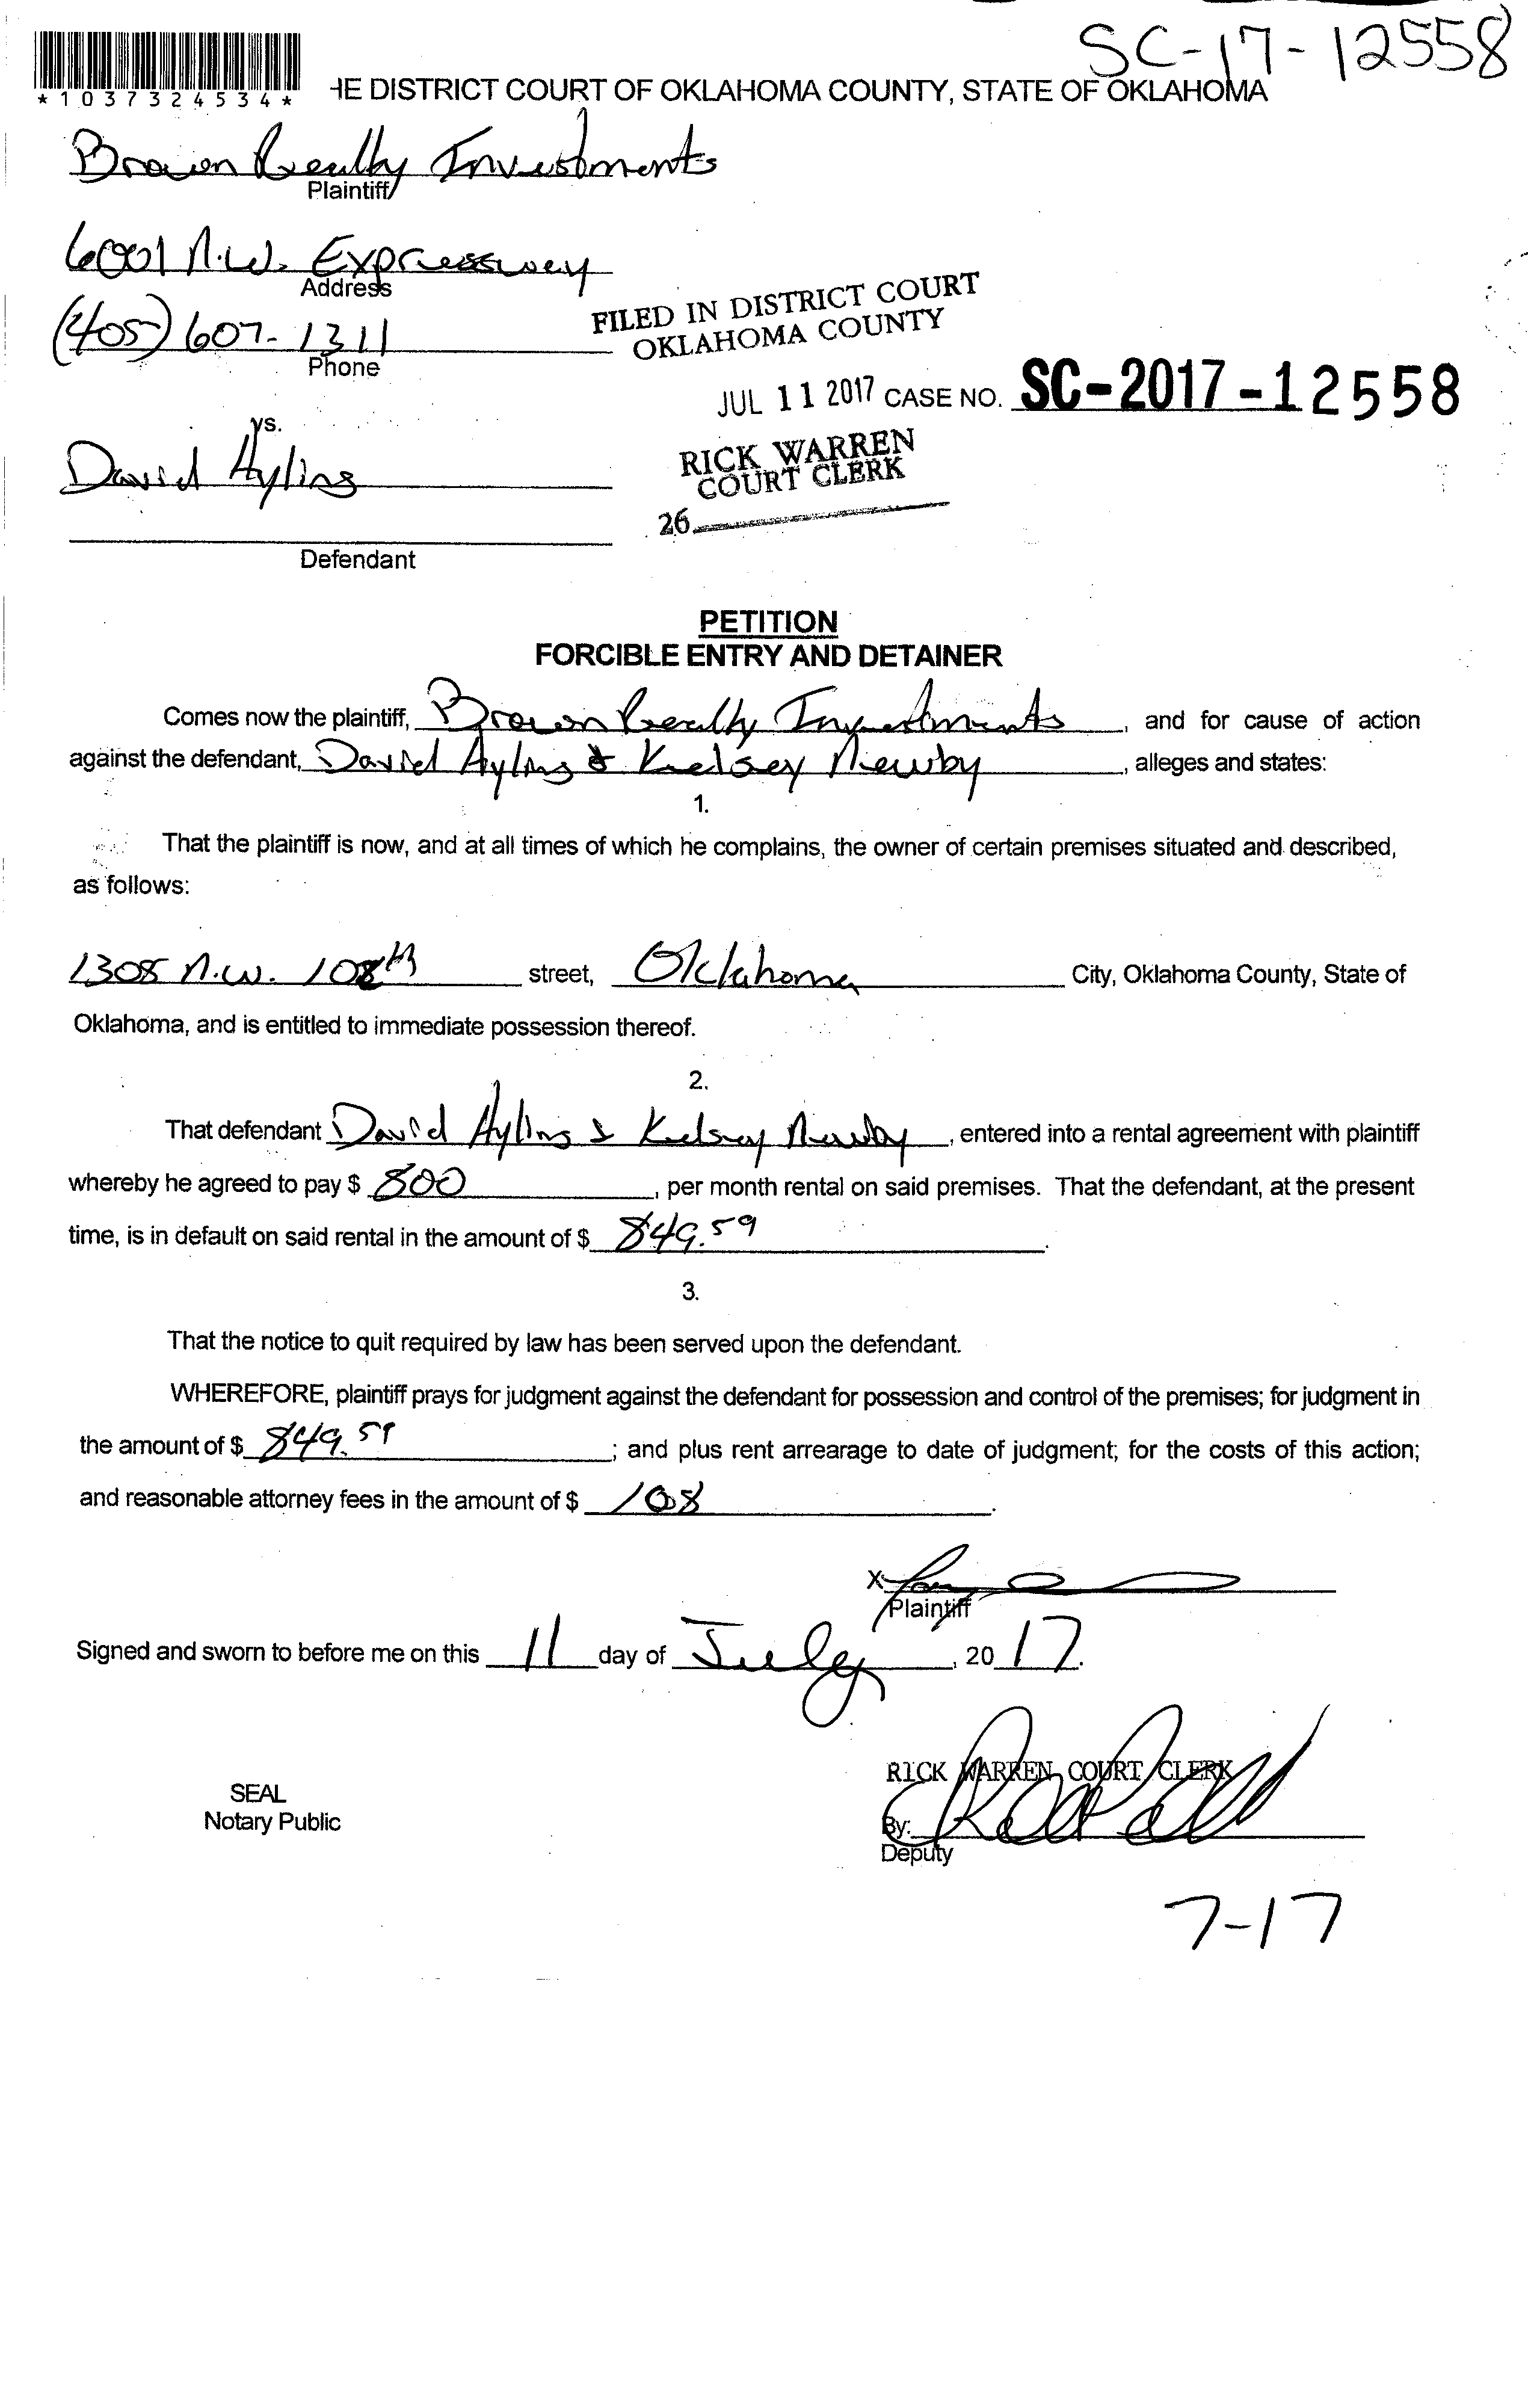 SC-17-12558
*1037324534*
HE DISTRICT COURT OF OKLAHOMA COUNTY, STATE OF OKLAHOMA
Brown Realty Investments
Plaintiff
6001 N.W. Expressway
Address
(405) 607-1311
Phone
FILED IN DISTRICT COURT
OKLAHOMA COUNTY
JUL 11 2017 CASE NO. SC-2017-12558
vs.
RICK WARREN
COURT CLERK
David Ayling
26
Defendant
PETITION
FORCIBLE ENTRY AND DETAINER
Comes now the plaintiff, Brown Realty Investments, and for cause of action
against the defendant, David Ayling & Kelsey Newby, alleges and states:
1.
That the plaintiff is now, and at all times of which he complains, the owner of certain premises situated and described,
as follows:
1308 N.W. 108th street, Oklahoma City, Oklahoma County, State of
Oklahoma, and is entitled to immediate possession thereof.
2.
That defendant David Ayling & Kelsey Newby, entered into a rental agreement with plaintiff
whereby he agreed to pay $ 800, per month rental on said premises. That the defendant, at the present
time, is in default on said rental in the amount of $ 849.59.
3.
That the notice to quit required by law has been served upon the defendant.
WHEREFORE, plaintiff prays for judgment against the defendant for possession and control of the premises; for judgment in
the amount of $ 849.59; and plus rent arrearage to date of judgment; for the costs of this action;
and reasonable attorney fees in the amount of $ 108.
X
Plaintiff
Signed and sworn to before me on this 11 day of July, 2017.
RICK WARREN, COURT CLERK
SEAL
Notary Public
By:
Deputy
7-17